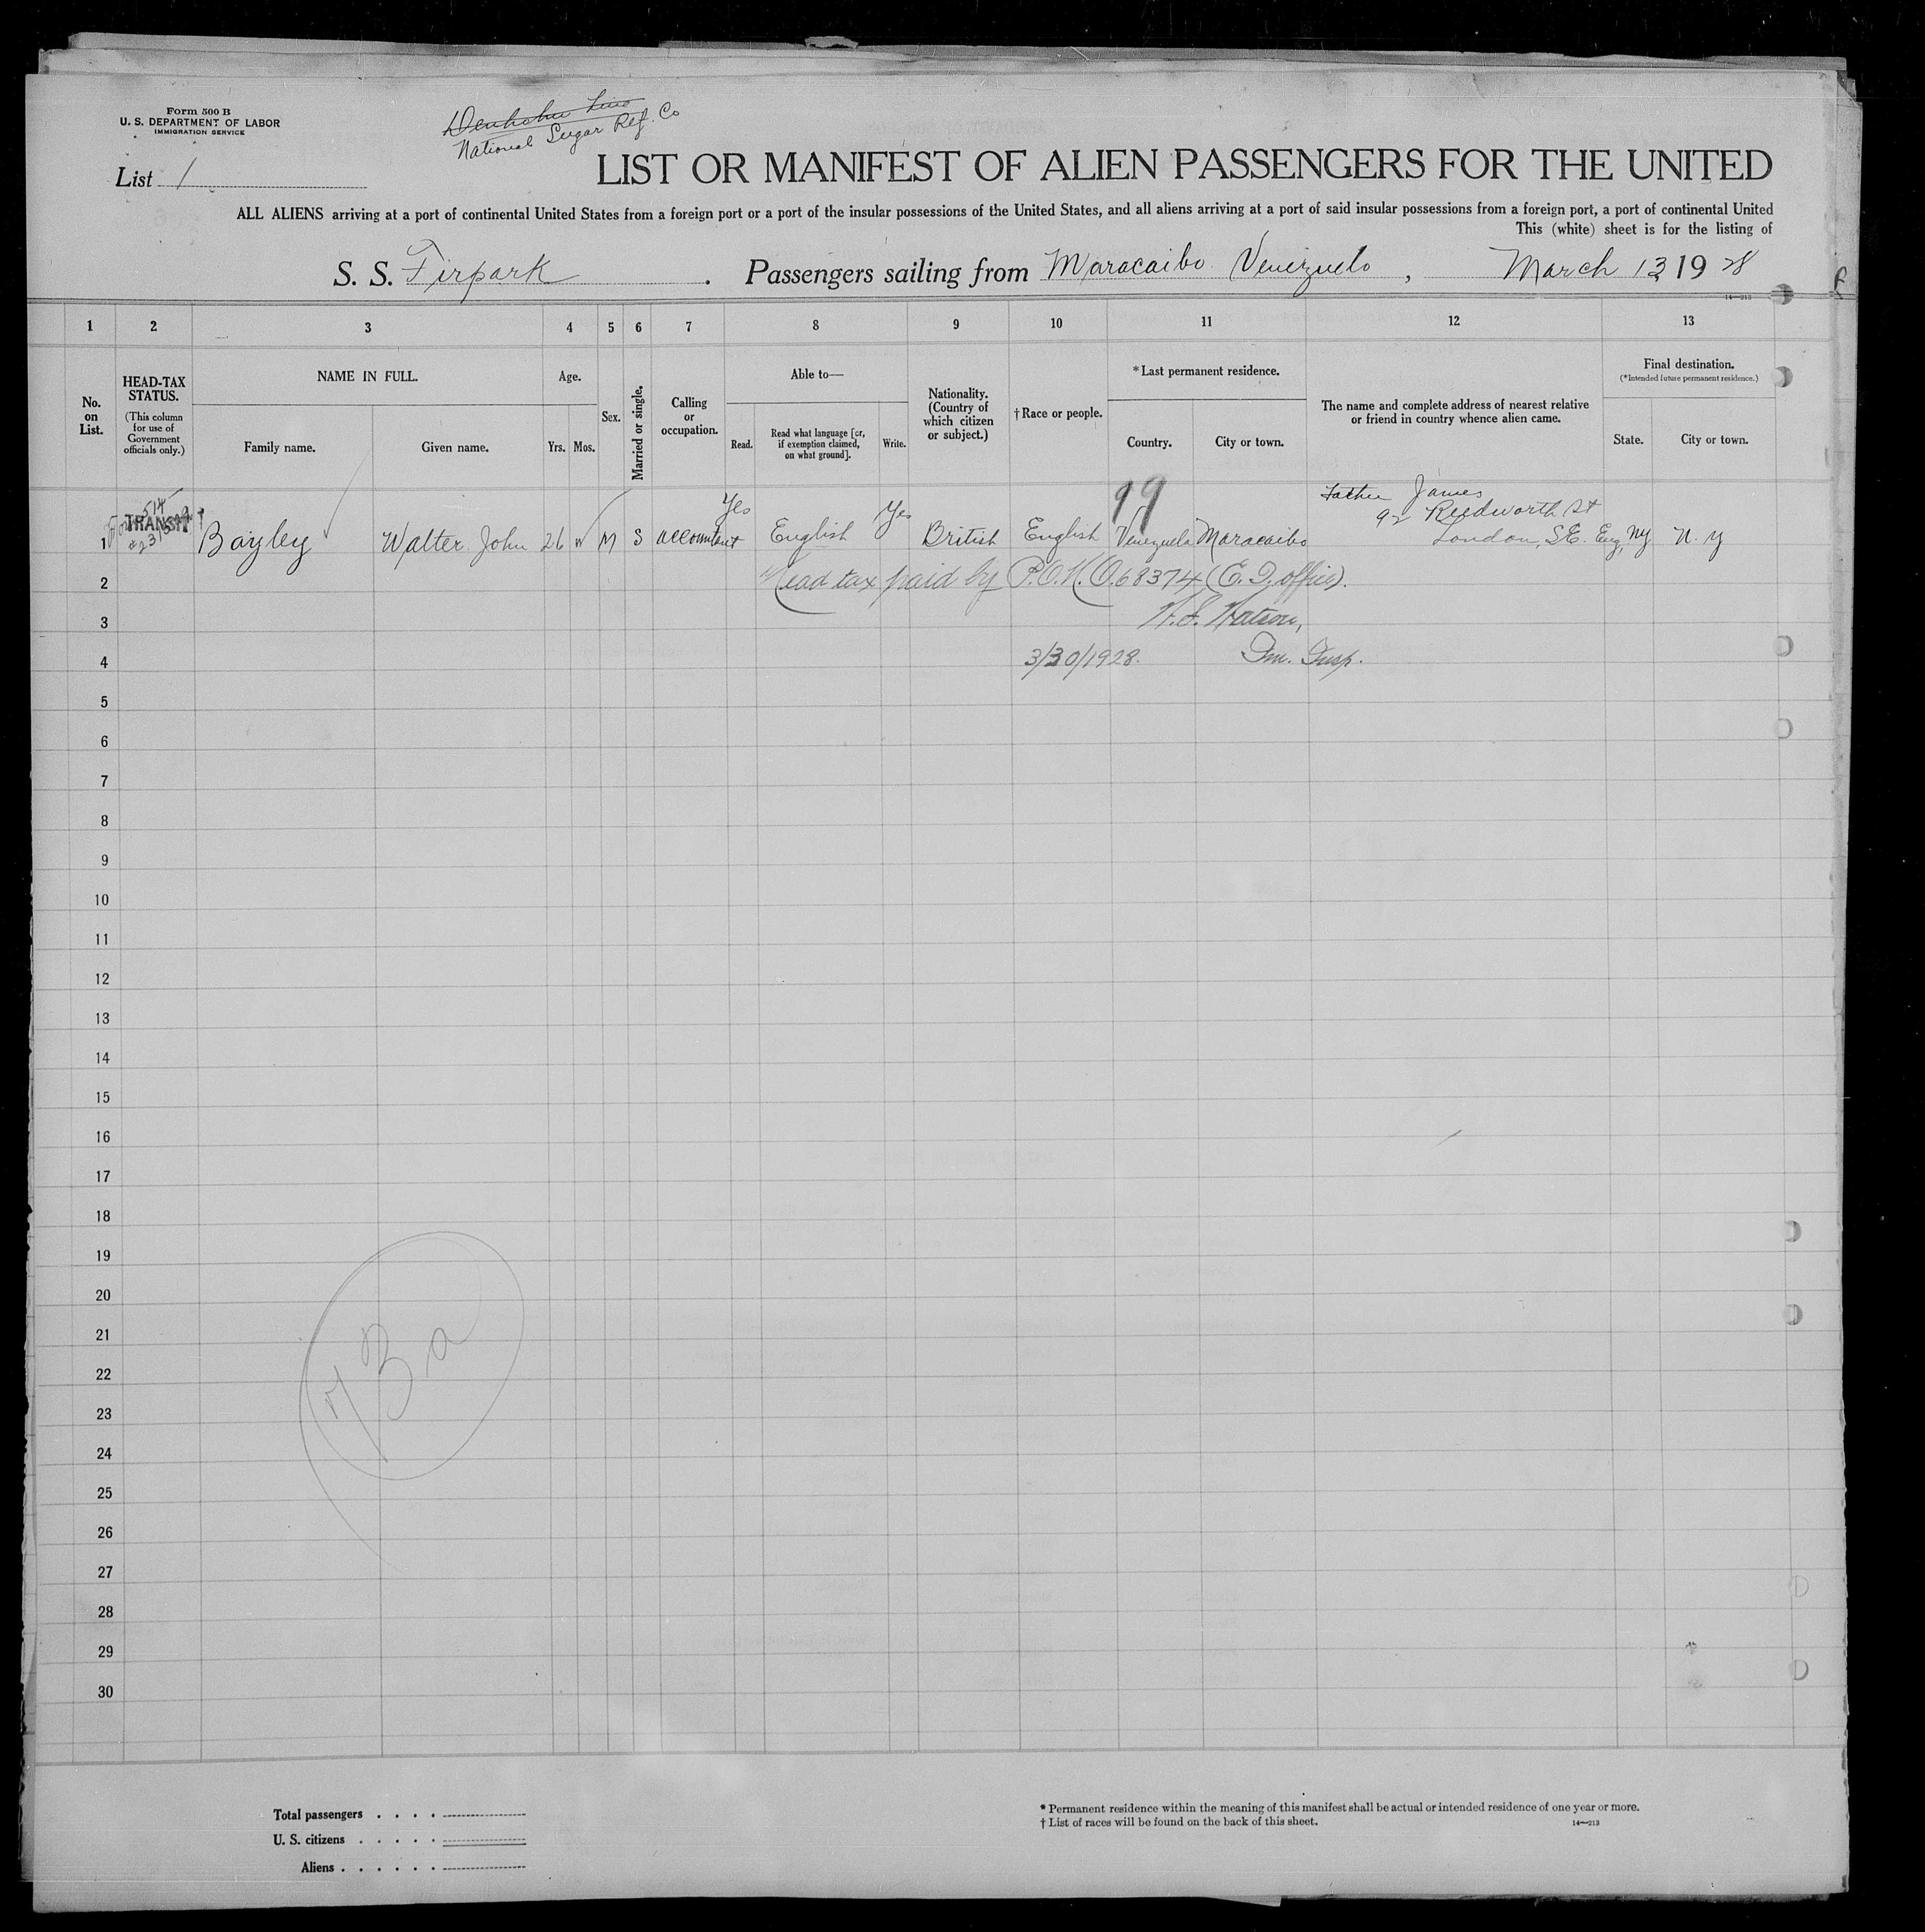 Form 500 B
U. S. DEPARTMENT OF LABOR
IMMIGRATION SERVICE
Line
National Sugar Ref. Co
List 1
LIST OR MANIFEST OF ALIEN PASSENGERS FOR THE UNITED
ALL ALIENS arriving at a port of continental United States from a foreign port or a port of the insular possessions of the United States, and all aliens arriving at a port of said insular possessions from a foreign port, a port of continental United
This (white) sheet is for the listing of
S. S. Firpark . Passengers sailing from Maracaibo Venezuela , March 13 1928
14—213
1 2 3 4 5 6 7 8 9 10 11 12 13
No. on List.
HEAD-TAX STATUS.
(This column for use of Government officials only.)
NAME IN FULL.
Family name.
Given name.
Age.
Yrs. Mos.
Sex.
Married or single.
Calling or occupation.
Able to—
Read.
Read what language [or, if exemption claimed, on what ground].
Write.
Nationality. (Country of which citizen or subject.)
† Race or people.
*Last permanent residence.
Country.
City or town.
The name and complete address of nearest relative or friend in country whence alien came.
Final destination.
(*Intended future permanent residence.)
State.
City or town.
99
Form 514
TRANSIT
Yes
Yes
Father James
92 Reedworth St
1 Bayley Walter John 26 M S accountant English British English Venezuela Maracaibo London, S.E. Eng. NY N.Y
2 Head tax paid by P.O.N.O. 68374 (E. I. office).
3 Watson,
4 3/30/1928. Im. Insp.
5
6
7
8
9
10
11
12
13
14
15
16
17
18
19
20
21
22
23
24
25
26
27
28
29
30
73a
Total passengers . . . .
U. S. citizens . . . . .
Aliens . . . . . .
* Permanent residence within the meaning of this manifest shall be actual or intended residence of one year or more.
† List of races will be found on the back of this sheet.
14—213